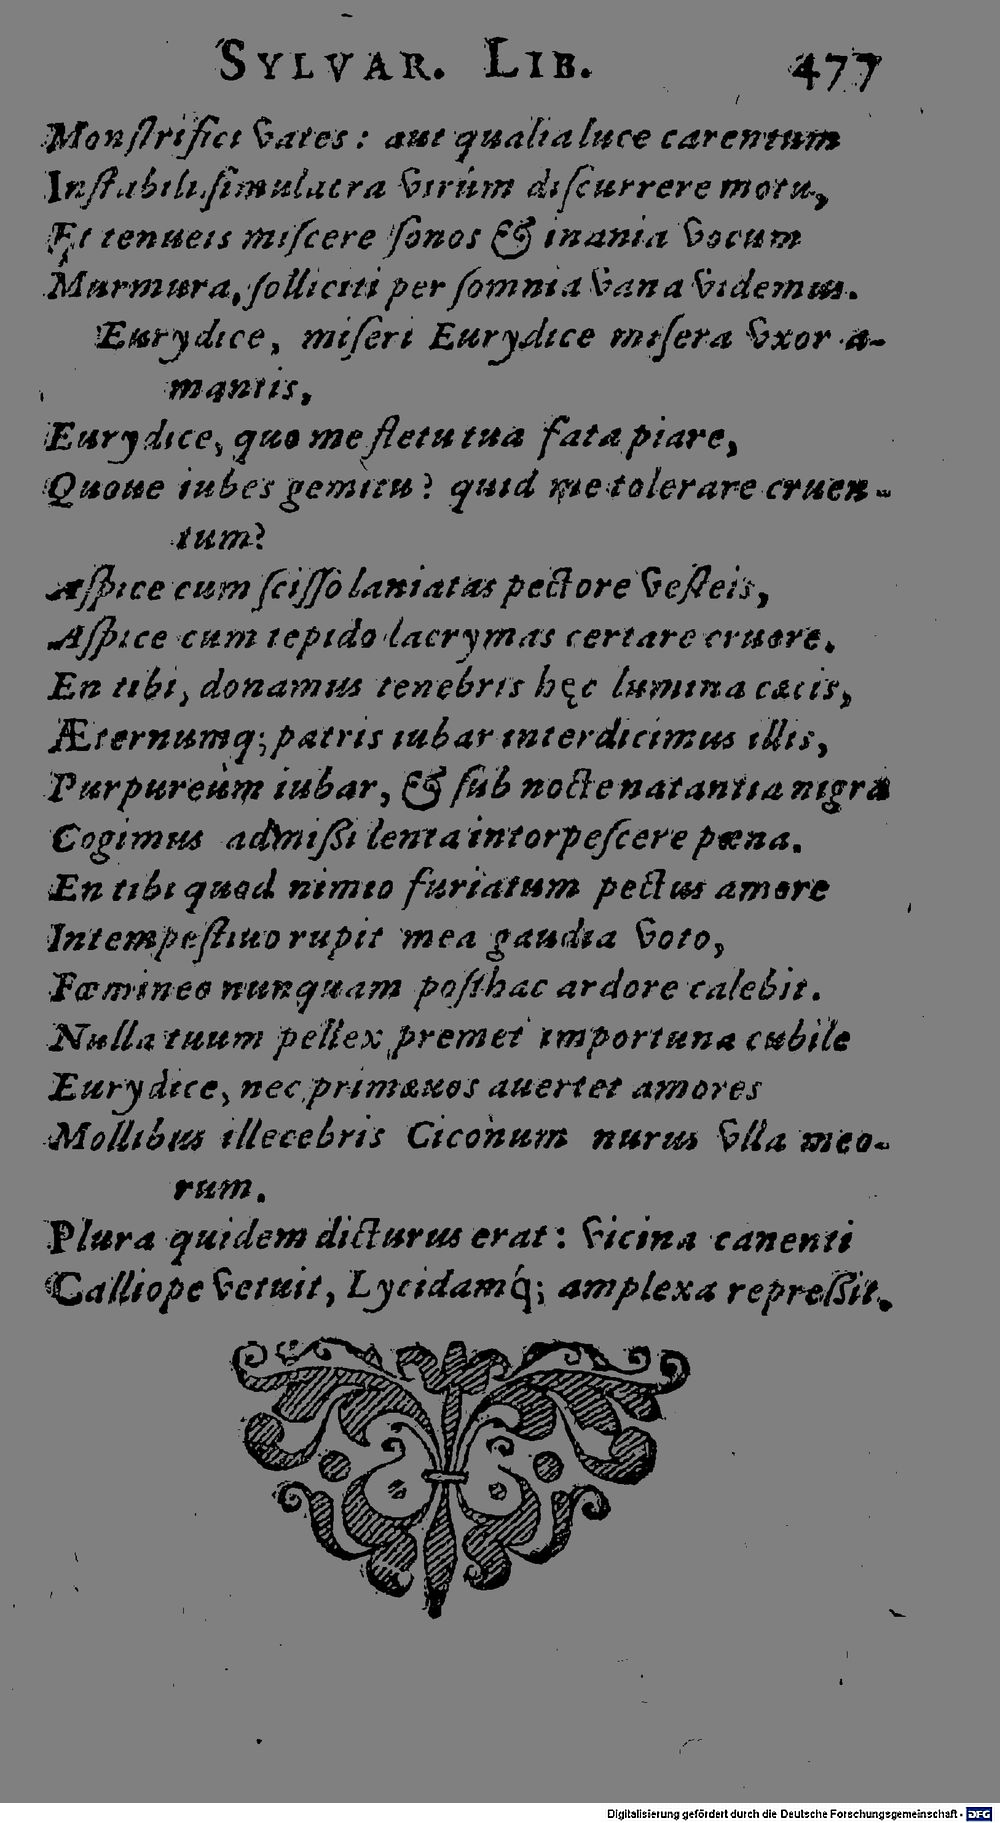 SYLVAR. LIB. 477
Monſtrifici vates: aut qualia luce carentum
Inſtabili ſimulacra virûm diſcurrere motu,
Et tenueis miſcere ſonos & inania vocum
Murmura, ſolliciti per ſomnia vana videmus.
Eurydice, miſeri Eurydice miſera vxor a-
mantis,
Eurydice, quo me fletu tua fata piare,
Quoue iubes gemitu? quid me tolerare cruen-
tum?
Aſpice cum ſciſſo laniatas pectore veſteis,
Aſpice cum tepido lacrymas certare cruore.
En tibi, donamus tenebris hęc lumina cæcis,
Æternumq; patris iubar interdicimus illis,
Purpureùm iubar, & ſub nocte natantia nigra
Cogimus admiſſi lenta intorpeſcere pœna.
En tibi quod nimio furiatum pectus amore
Intempeſtiuo rupit mea gaudia voto,
Fœmineo nunquam poſthac ardore calebit.
Nulla tuum pellex premet importuna cubile
Eurydice, nec primæuos auertet amores
Mollibus illecebris Ciconum nurus vlla meo-
rum.
Plura quidem dicturus erat: vicina canenti
Calliope vetuit, Lycidamq́; amplexa repreſſit.
Digitalisierung gefördert durch die Deutsche Forschungsgemeinschaft - DFG